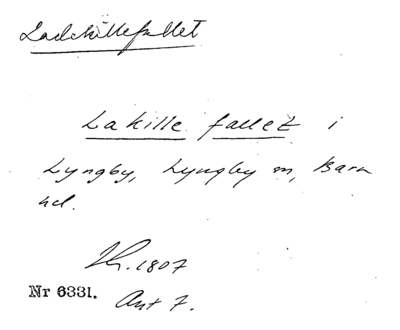 Ladekillefallet
Lakille fallet i
Lyngby, Lyngby sn, Bara
hd.
Th. 1807
Nr 6331.
Ant 7.